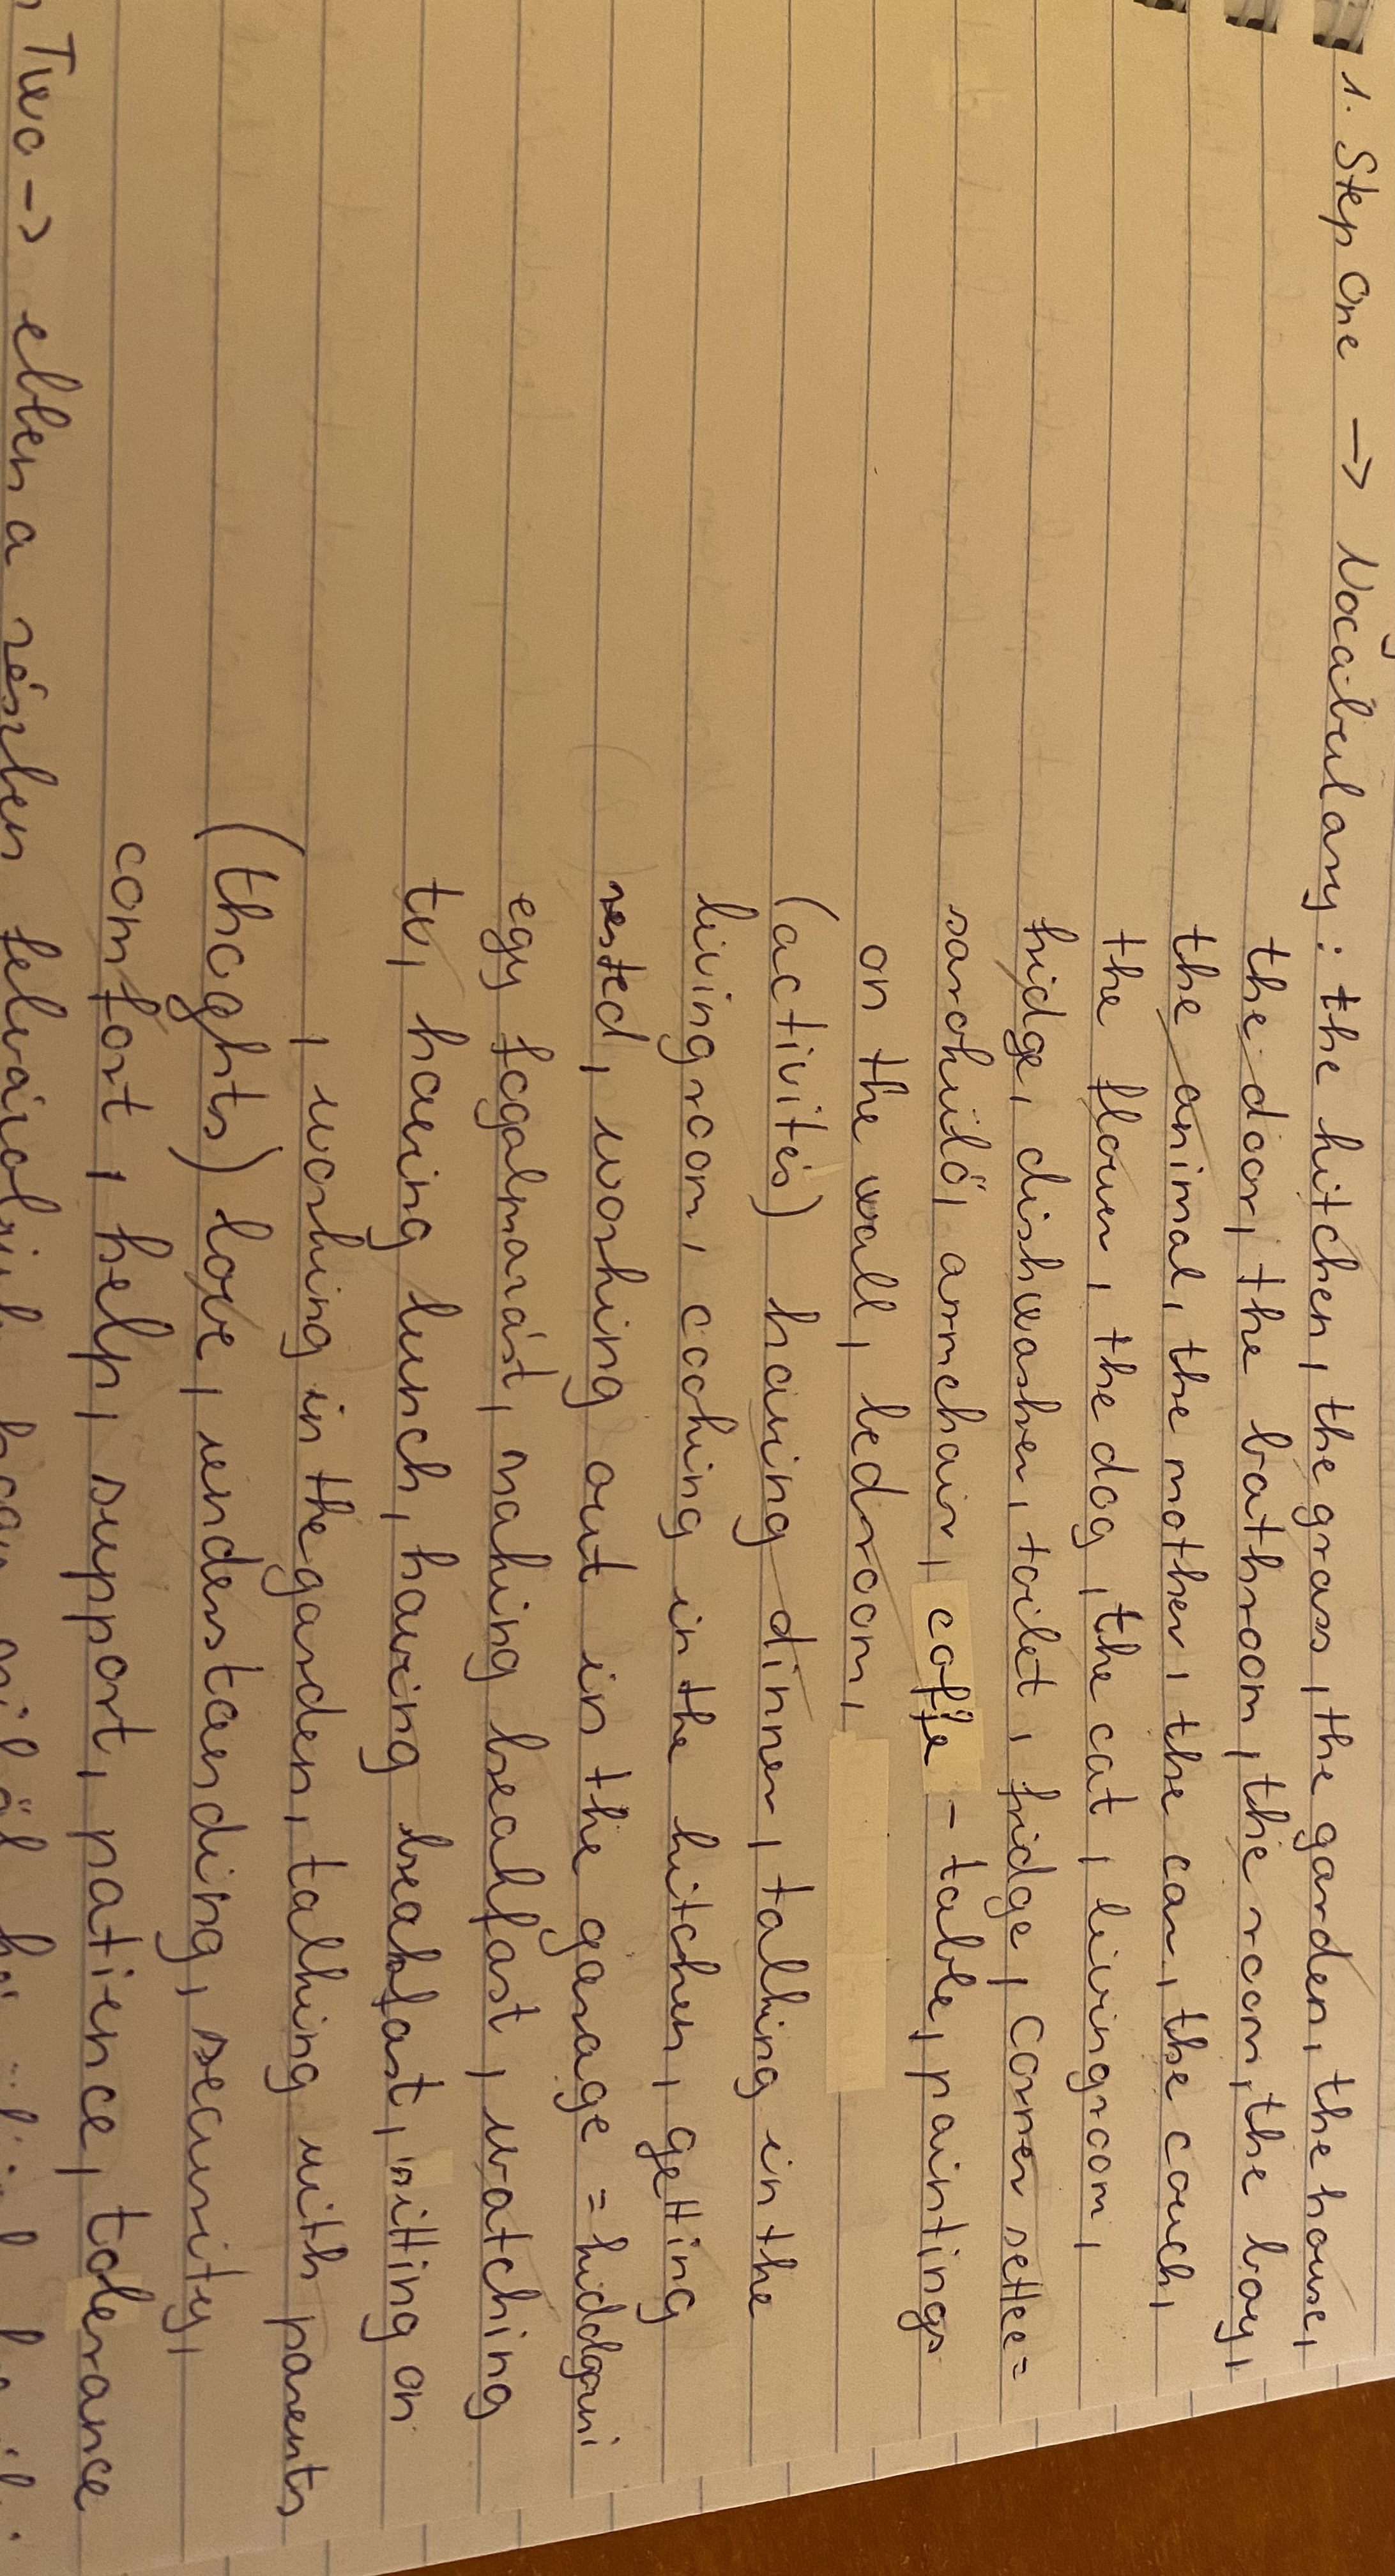 1. Step one → Vocabulary: the kitchen, the grass, the garden, the house,
the door, the bathroom, the room, the boy,
the animal, the mother, the car, the couch,
the flower, the dog, the cat, livingroom,
fridge, dishwasher, toilet, fridge, corner settee =
sarokülő, armchair, coffe - table, paintings
on the wall, bedroom,
(activités) having dinner, talking in the
livingroom, cooking in the kitchen, getting
rested, working out in the garage = kidolgozni
egy fogalmazást, making breakfast, watching
tv, having lunch, having breakfast, sitting on
, working in the garden, talking with parents
(thoghts) love, understanding, security,
comfort, help, support, patience, tolerance
Two → ebben a részben felvázoljuk hogy